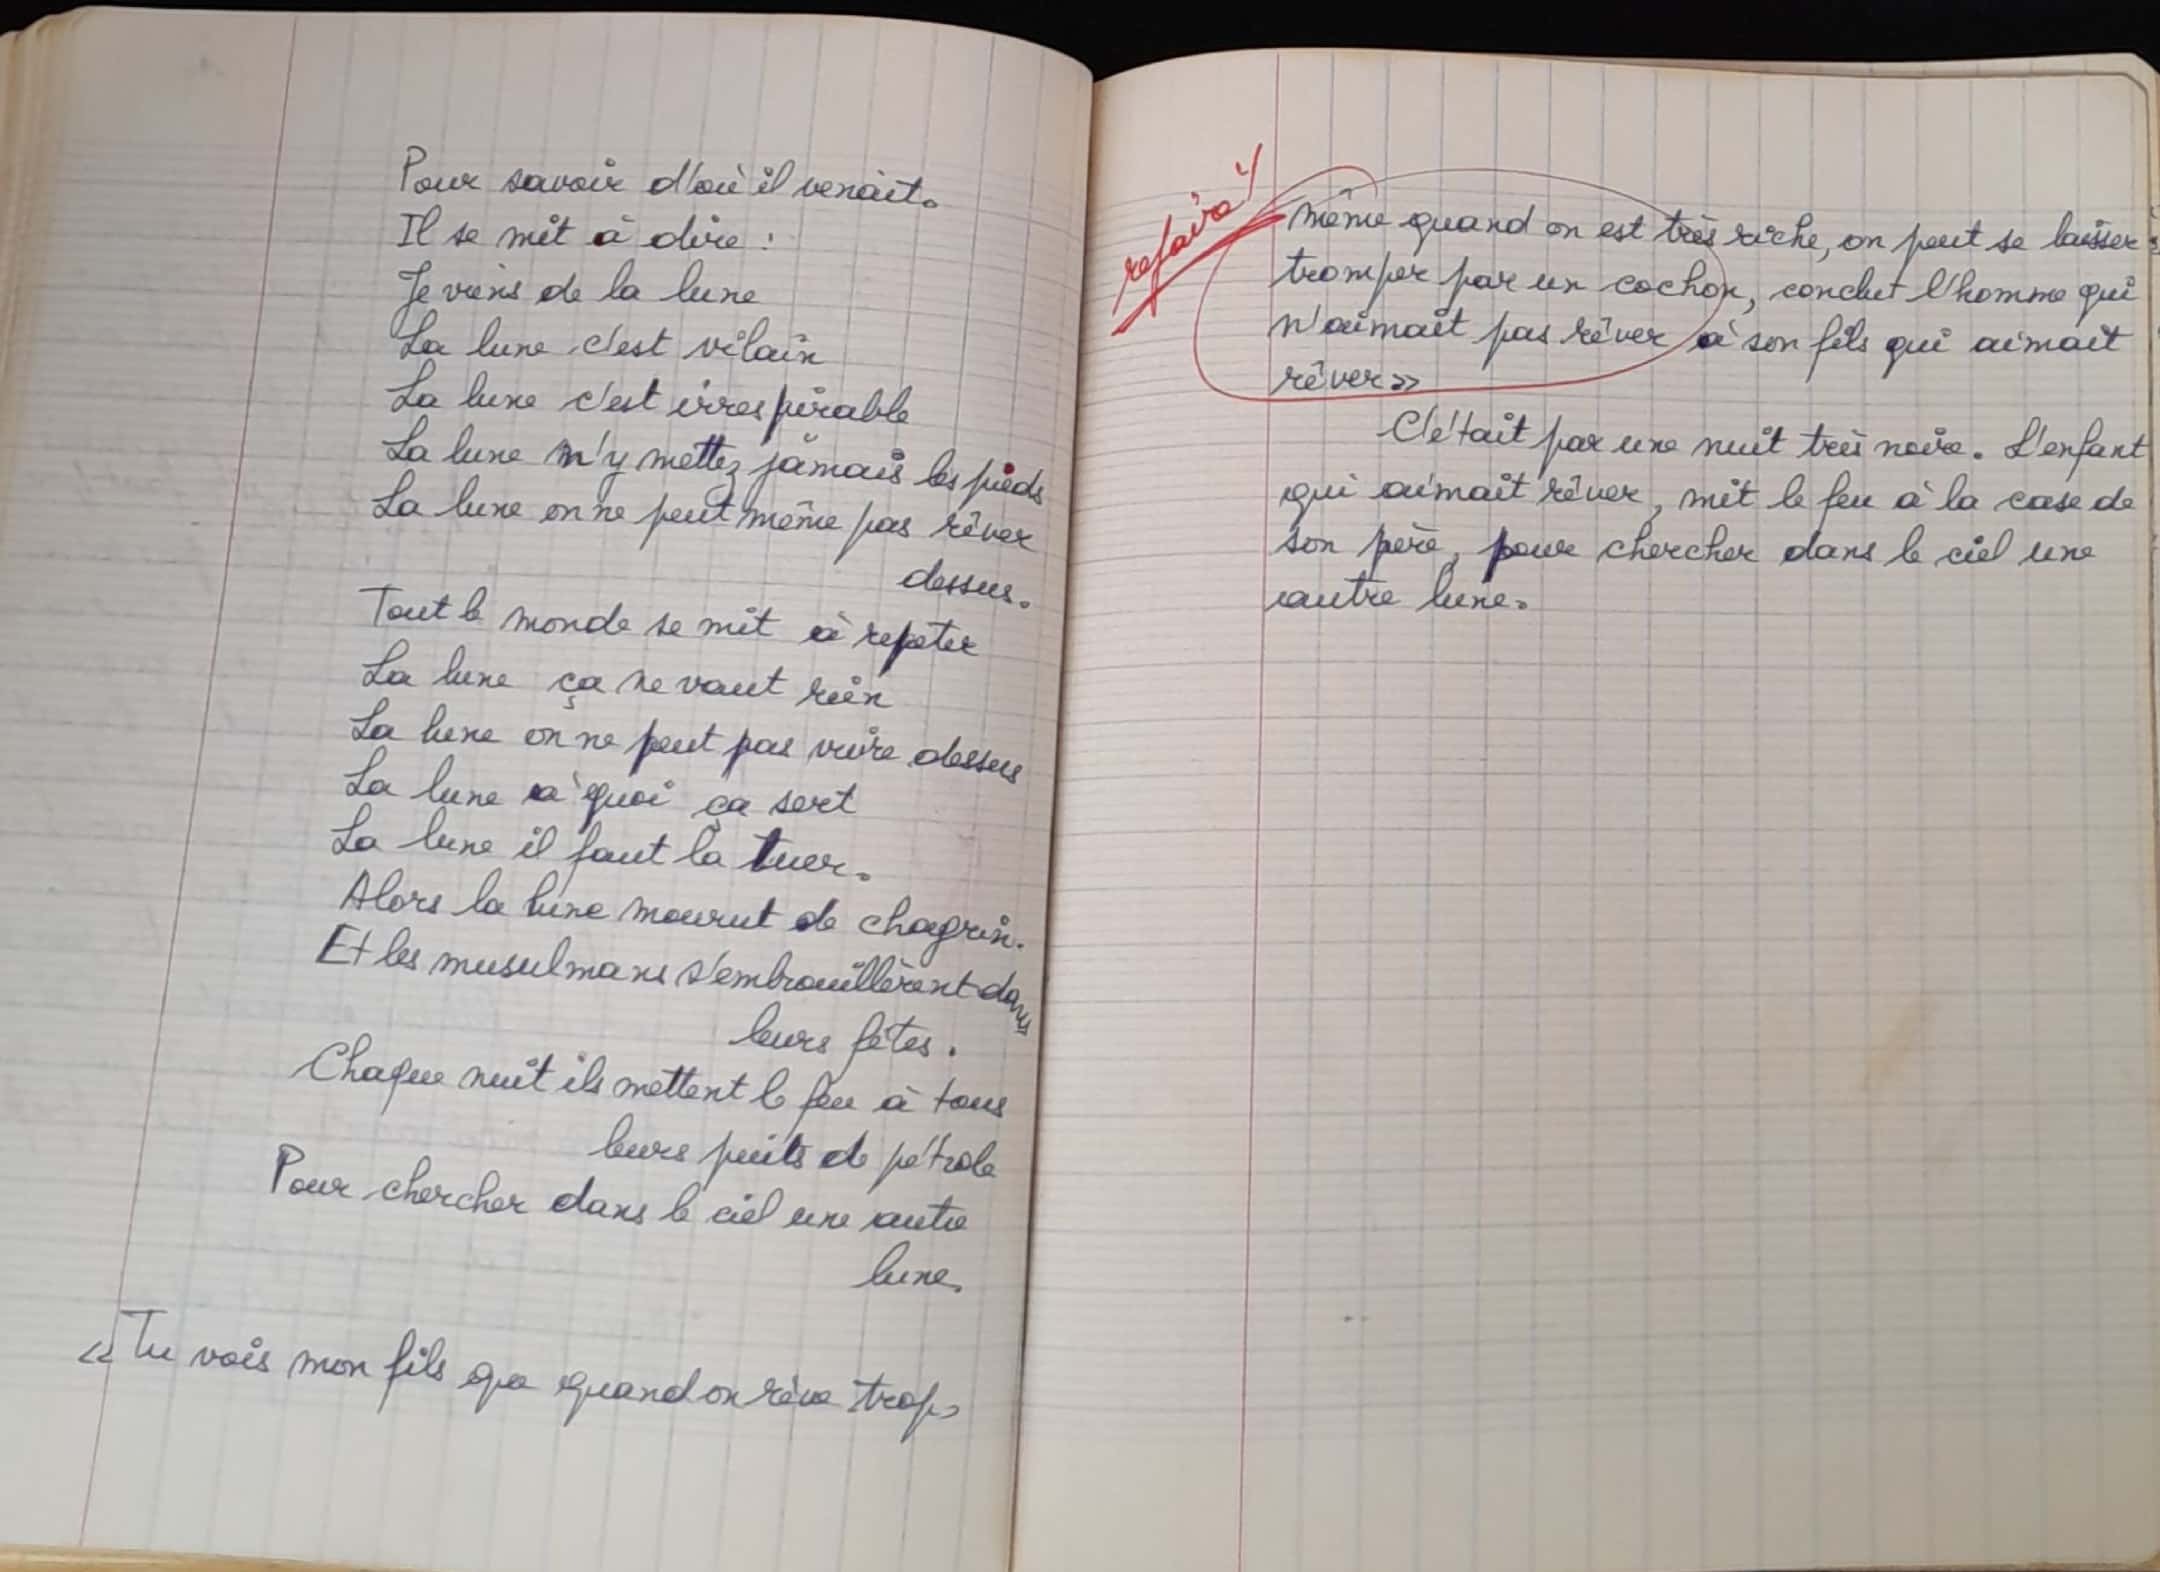 Pour savoir d'où il venait.
Il se mit à dire :
Je viens de la lune
La lune c'est vilain
La lune c'est irrespirable
La lune n'y mettez jamais les pieds
La lune on ne peut même pas rêver
dessus.
Tout le monde se mit à repéter
La lune ça ne vaut rien
La lune on ne peut pas vivre dessus
La lune à quoi ça sert
La lune il faut la tuer.
Alors la lune mourut de chagrin.
Et les musulmans s'embrouillèrent dans
leurs fêtes.
Chaque nuit ils mettent le feu à tous
leurs puits de pétrole
Pour chercher dans le ciel une autre
lune.
« Tu vois mon fils que quand on rêve trop,
refaire !
même quand on est très riche, on peut se laisser
tromper par un cochon, conclut l'homme qui
n'aimait pas rêver à son fils qui aimait
rêver »
C'était par une nuit très noire. L'enfant
qui aimait rêver, mit le feu à la case de
son père, pour chercher dans le ciel une
autre lune.